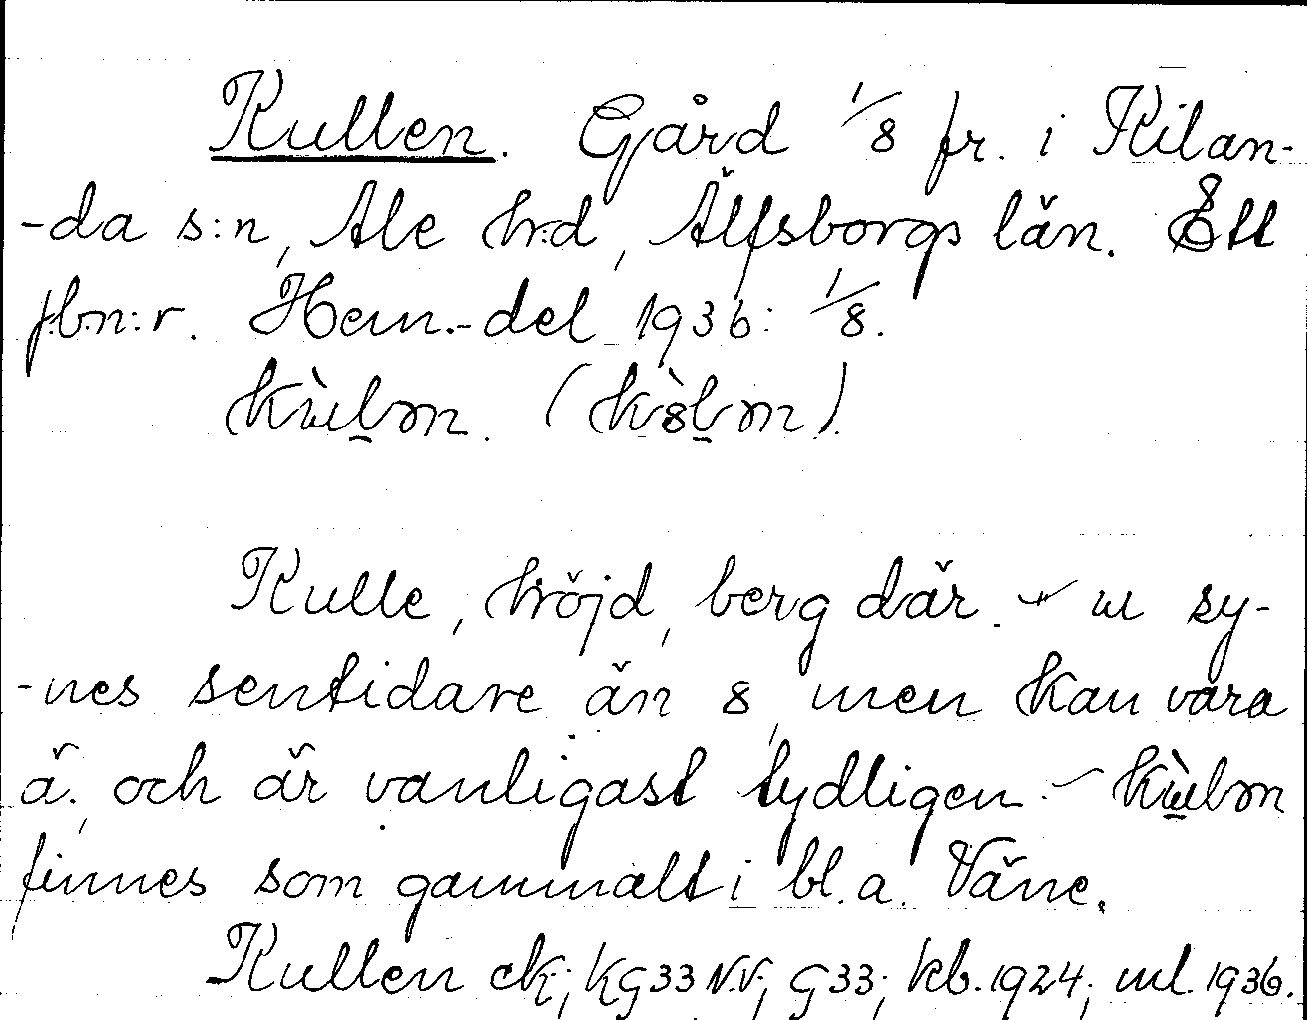 Kullen. Gård 1/8 fr. i Kilan-
-da s:n, Ale h:d, Älfsborgs län. Ett
jbn:r. Hem.-del 1936: 1/8.

Kulle, höjd, berg där. - u sy-
-nes sentidare än 8, men kan vara
ä. och är vanligast tydligen -
finnes som gammalt i bl.a. Väne.
Kullen ek; KG33 N.V; G33; kb. 1924; ml. 1936.